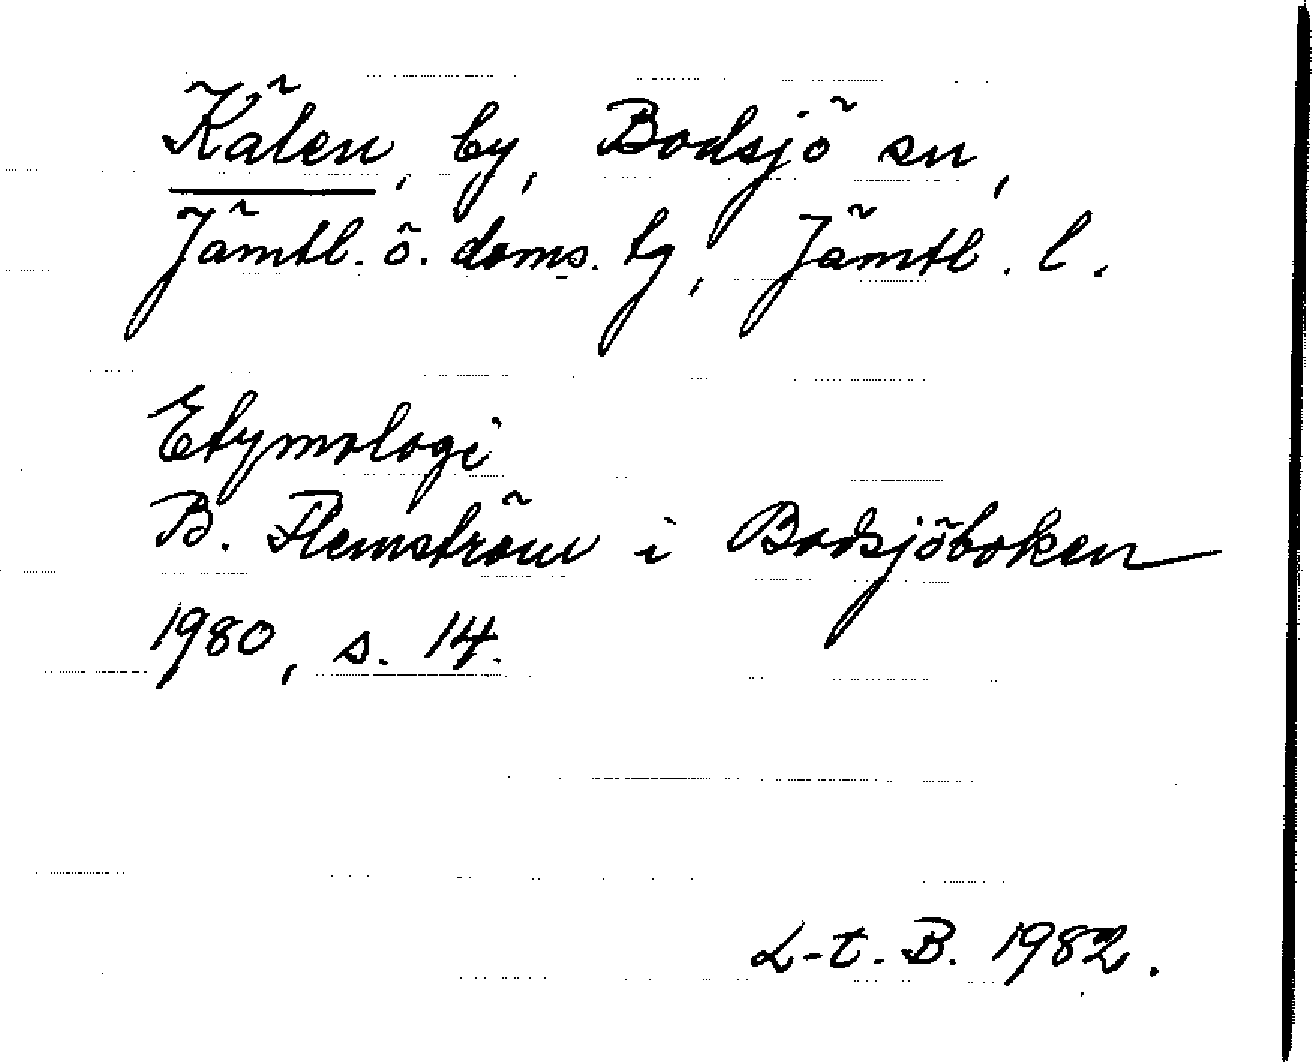 Kälen, by, Bodsjö sn,
Jämtl. ö. doms. tg, Jämtl. l.
Etymologi
B. Flemström i Bodsjöboken
1980, s. 14.
L-t. B. 1982.